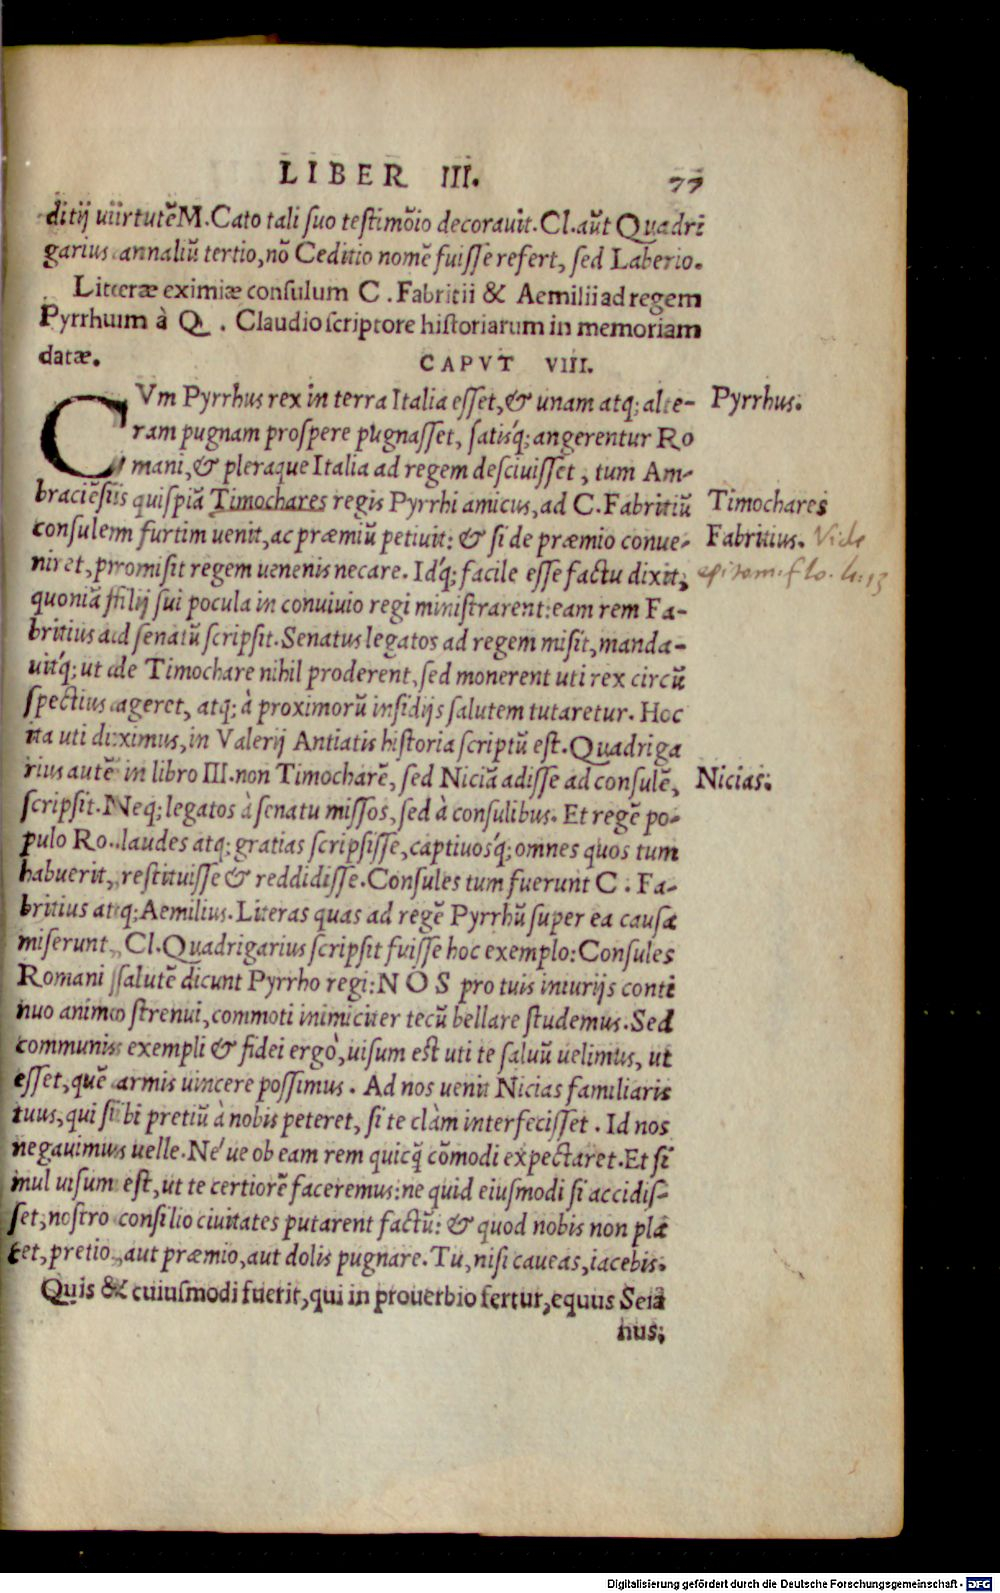 LIBER III. 77
ditij uiirtutẽ M. Cato tali suo testimõio decorauit. Cl. aũt Quadri
garius annaliũ tertio, nõ Ceditio nomẽ fuisse refert, sed Laberio.
Litteræ eximiæ consulum C. Fabritii & Aemilii ad regem
Pyrrhum à Q. Claudio scriptore historiarum in memoriam
datæ.
CAPVT VIII.
CVm Pyrrhus rex in terra Italia esset, & unam atq; alte-
ram pugnam prospere pugnasset, satisq́; angerentur Ro
mani, & pleraque Italia ad regem desciuisset, tum Am-
braciẽsiis quispiã Timochares regis Pyrrhi amicus, ad C. Fabritiũ
consulem furtim uenit, ac præmiũ petiuit: & si de præmio conue-
niret, promisit regem uenenis necare. Idq́; facile esse factu dixit,
quoniã filij sui pocula in conuiuio regi ministrarent: eam rem Fa-
britius ad senatũ scripsit. Senatus legatos ad regem misit, manda-
uitq́; ut de Timochare nihil proderent, sed monerent uti rex circũ
spectius ageret, atq; à proximorũ insidijs salutem tutaretur. Hoc
ita uti diximus, in Valerij Antiatis historia scriptũ est. Quadriga
rius autẽ in libro III. non Timocharẽ, sed Niciã adisse ad consulẽ,
scripsit. Neq; legatos à senatu missos, sed à consulibus. Et regẽ po-
pulo Ro. laudes atq; gratias scripsisse, captiuosq́; omnes quos tum
habuerit, restituisse & reddidisse. Consules tum fuerunt C. Fa-
britius atq; Aemilius. Literas quas ad regẽ Pyrrhũ super ea causa
miserunt, Cl. Quadrigarius scripsit fuisse hoc exemplo: Consules
Romani salutẽ dicunt Pyrrho regi: NOS pro tuis iniurijs conti
nuo animo strenui, commoti inimiciter tecũ bellare studemus. Sed
communis exempli & fidei ergò, uisum est uti te saluũ uelimus, ut
esset, quẽ armis uincere possimus. Ad nos uenit Nicias familiaris
tuus, qui sibi pretiũ à nobis peteret, si te clàm interfecisset. Id nos
negauimus uelle. Né ue ob eam rem quicq̃ cõmodi expectaret. Et si
mul uisum est, ut te certiorẽ faceremus: ne quid eiusmodi si accidis-
set, nostro consilio ciuitates putarent factũ: & quod nobis non pla
cet, pretio, aut præmio, aut dolis pugnare. Tu, nisi caueas, iacebis.
Quis & cuiusmodi fuerit, qui in prouerbio fertur, equus Seia
nus;
Pyrrhus.
Timochares
Fabritius. Vide
epitom. flo. li: 13
Nicias.
Digitalisierung gefördert durch die Deutsche Forschungsgemeinschaft - DFG